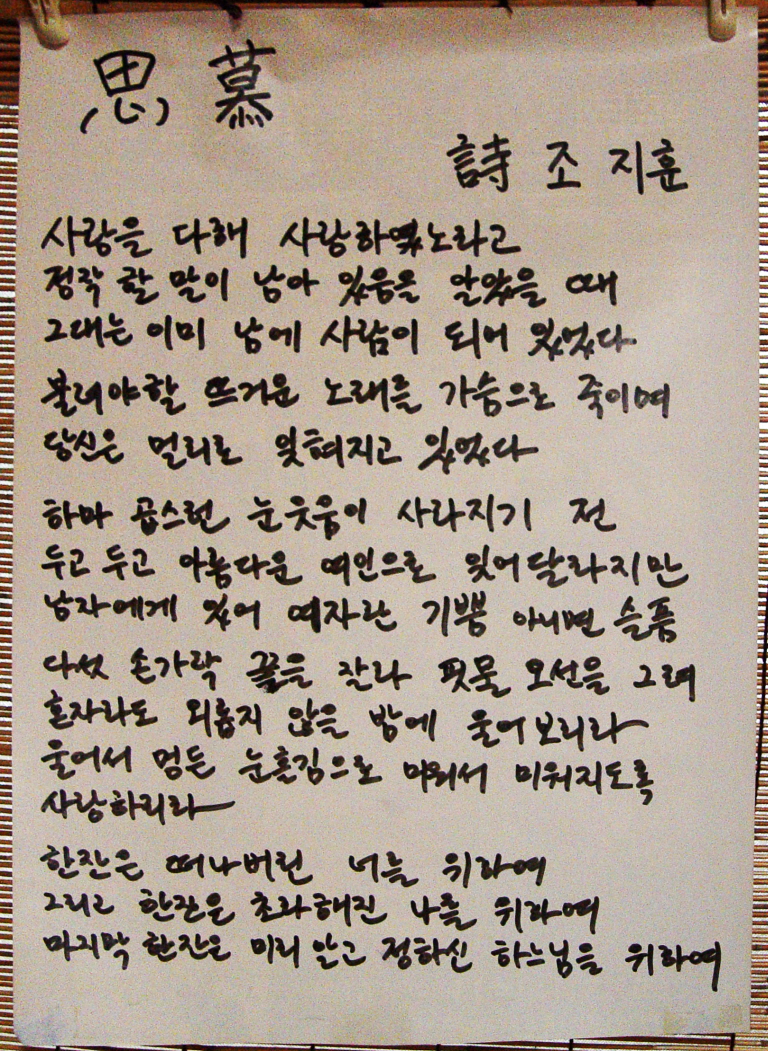 思慕
詩 조 지훈
사랑을 다해 사랑하였노라고
정작 할 말이 남아 있음을 알았을 때
그대는 이미 남에 사람이 되어 있었다
불러야할 뜨거운 노래를 가슴으로 죽이며
당신은 멀리로 잊혀지고 있었다
하마 곱스런 눈웃움이 사라지기 전
두고 두고 아름다운 여인으로 잊어달라지만
남자에게 있어 여자란 기쁨 아니면 슬픔
다섯 손가락 끝을 잘라 핏물 오선을 그려
혼자라도 외롭지 않을 밤에 울어보리라
울어서 멍든 눈흘김으로 미워서 미워지도록
사랑하리라
한잔은 떠나버린 너를 위하여
그리고 한잔은 초라해진 나를 위하여
마지막 한잔은 미리 알고 정하신 하느님을 위하여